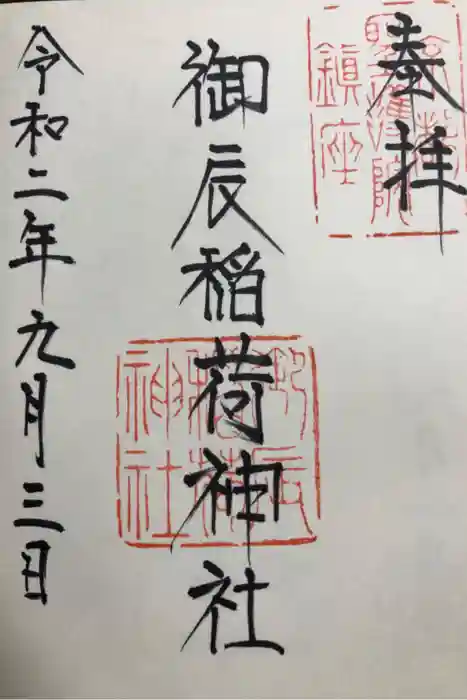 奉拝
御辰稲荷神社
令和二年九月三日
聖護院
鎮座
御辰
稲荷
神社